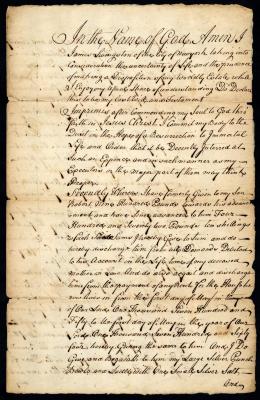 In the Name of God Amen I
James Livingston of the City of New York taking into
Consideration the uncertainty of Life and the
of making a Disposition of my worldly Estate while
I Enjoy my Share of understanding Do Declare
this to be my Last Will and Testament
Imprimis after Commending my Soul to God thro
Faith in Jesus Christ I Commit my Body to the
Dust in the Hope of a Resurrection to Immortal
Life and Order that it be Decently Interred at
Such an Expence and in such manner as my
Executors or the Major part of them may think
Proper
Secondly Whereas I have formerly Given to my Son
Robert Nine Hundred Pounds towards his advance
ment and have Since advanced to him Four
Hundred and Twenty two Pounds ten shillings
I hereby Give to him and do
hereby discharge him
to his Account in the Life time of my deceased
mother in Law And do also acquit and discharge
him from the payment of any Rent for the House he
now lives in from the first day of May in the
of Our Lord One Thousand Seven Hundred and
Fifty to the first day of May in the year of Our
Lord One Thousand Seven Hundred and Sixty
four hereby Giving the same to him And I Do
Give and Bequeath to him my Large Silver Punch
Bowl and Ladle with One Silver Salt
One